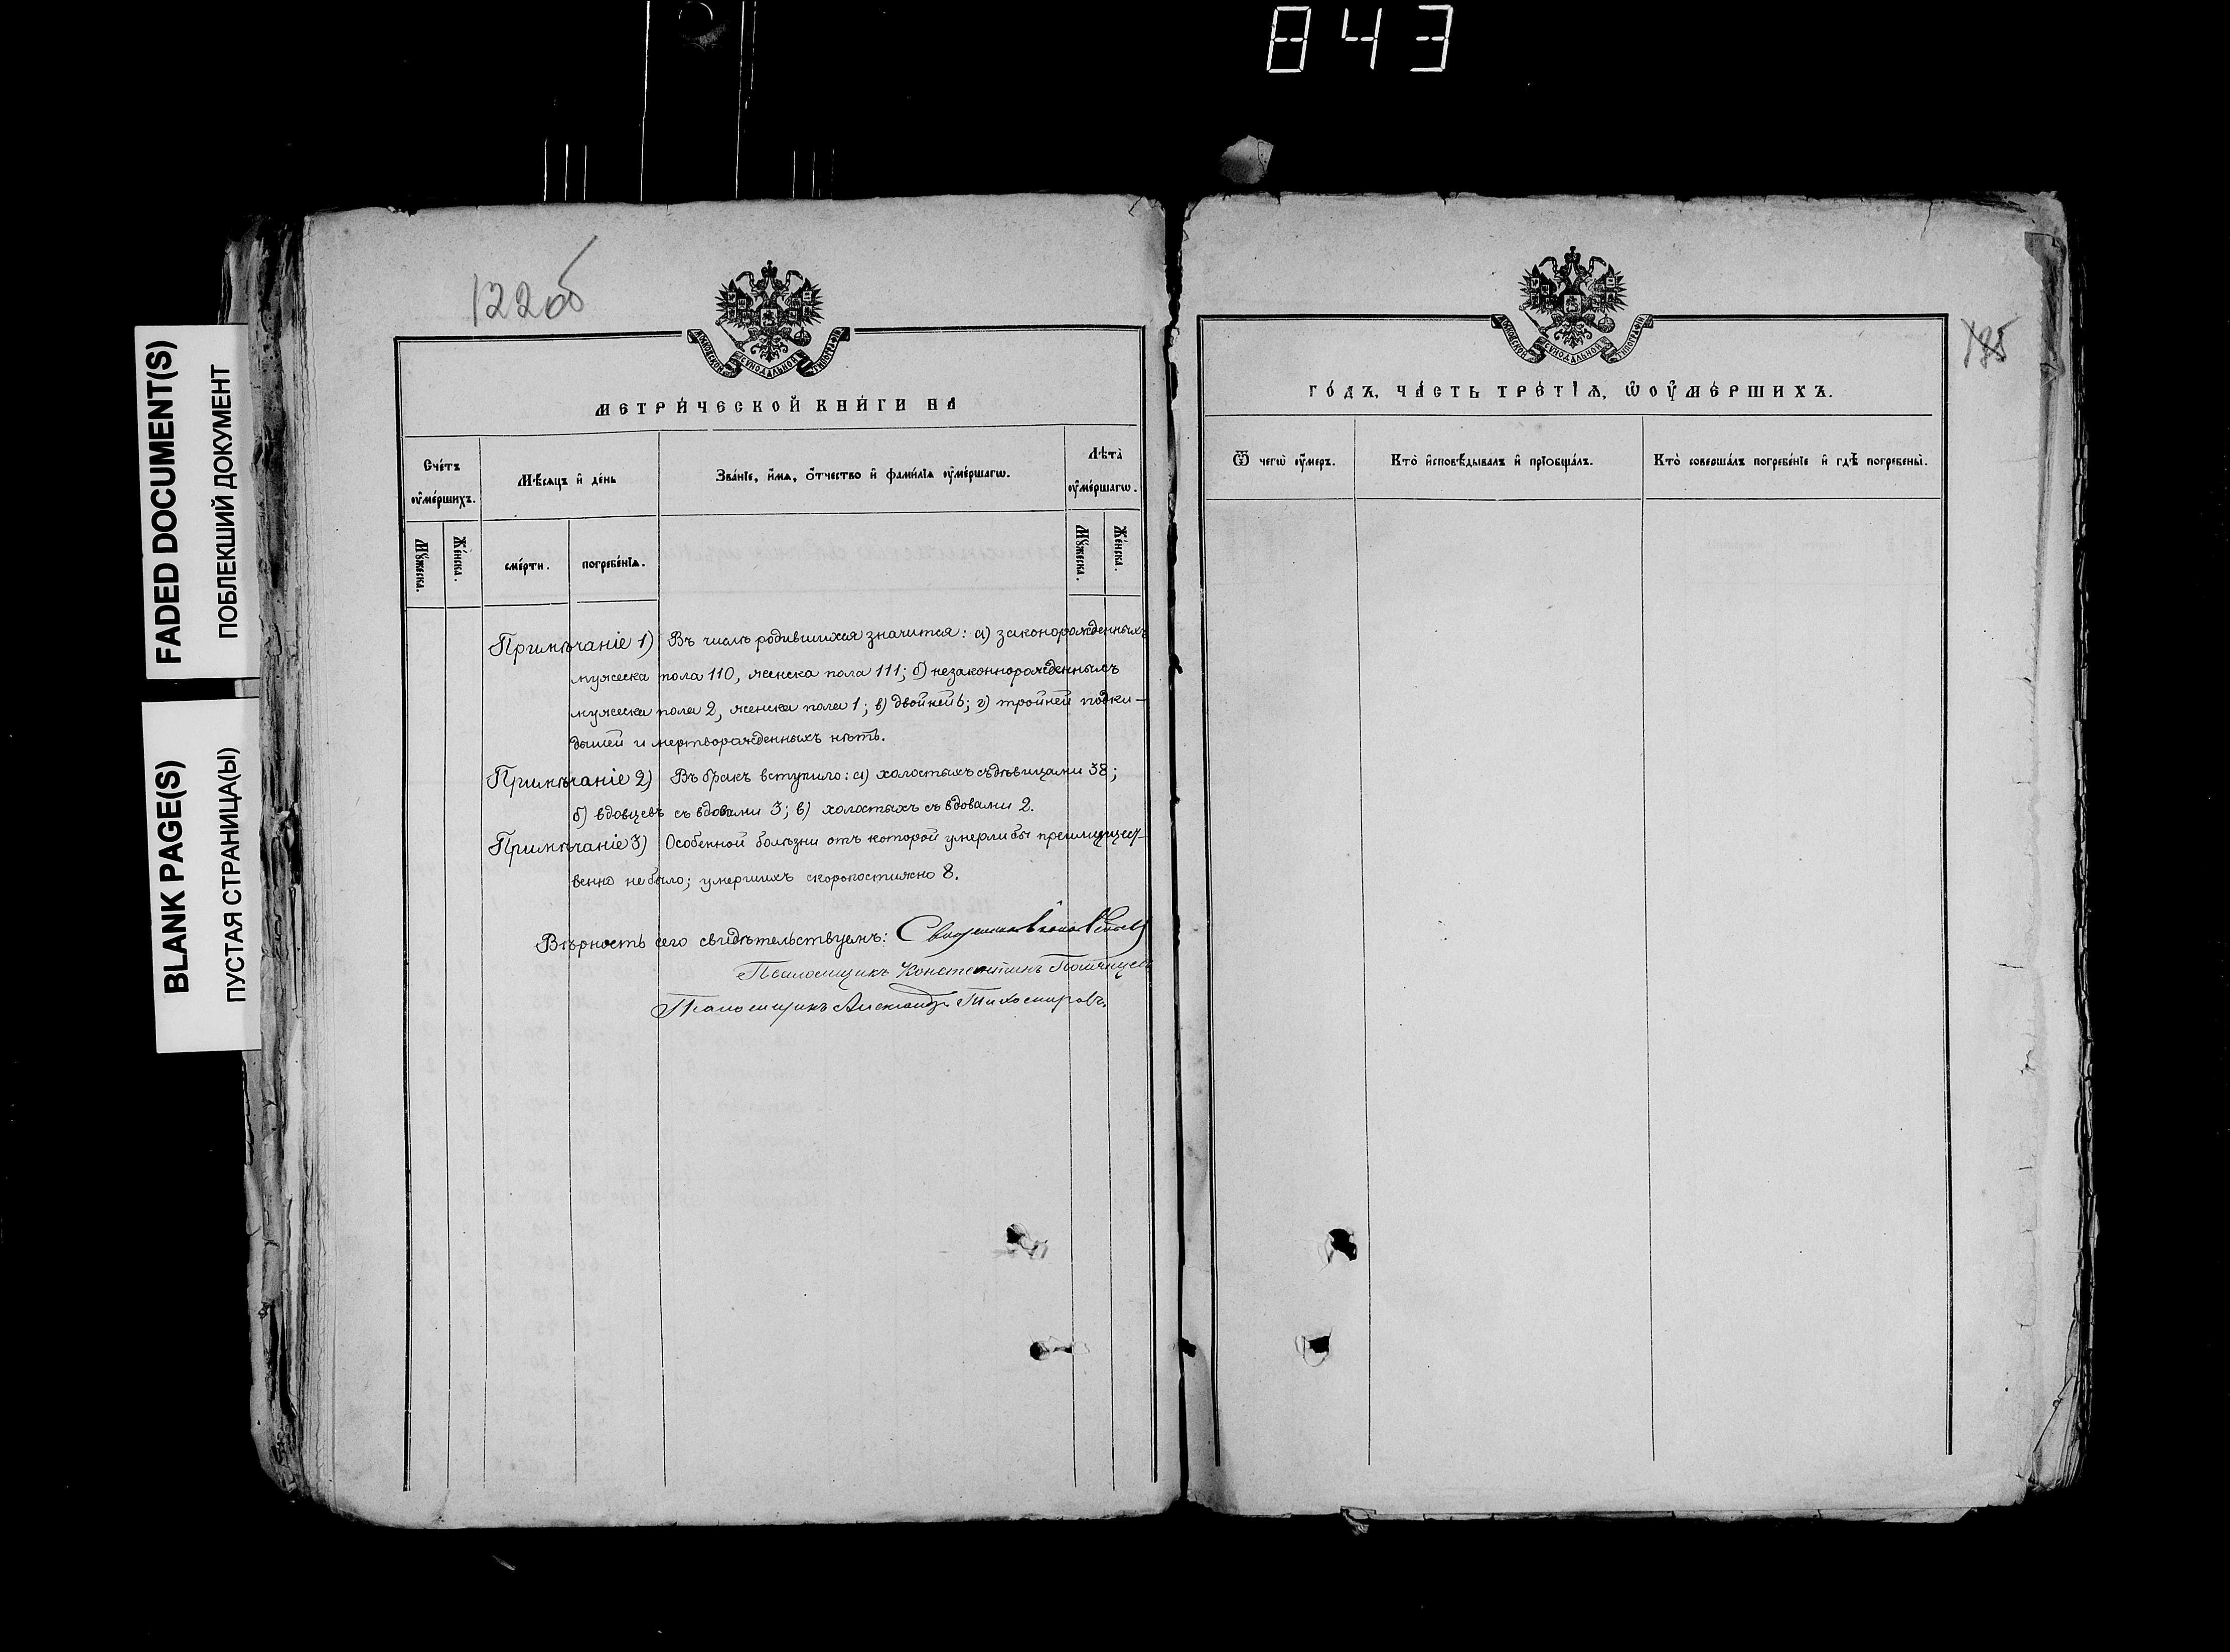 843
FADED DOCUMENT(S)
ПОБЛЕКШИЙ ДОКУМЕНТ
BLANK PAGE(S)
ПУСТАЯ СТРАНИЦА(Ы)
122об
МОСКОВСКОЙ СѴНОДАЛЬНОЙ ТИПОГРАФІИ
МЕТРИ́ЧЕСКОЙ КНИ́ГИ НА
Сче́тъ ᲂу҆ме́ршихъ.
Мꙋ́жеска.
Же́нска.
Мѣ́сяцъ и҆ де́нь
сме́рти.
погребе́нїѧ.
Зва́нїе, и҆́мѧ, ѻ҆́тчество и҆ фамі́лїѧ ᲂу҆ме́ршагѡ.
Лѣ́та̀ ᲂу҆ме́ршагѡ.
Мꙋ́жеска.
Же́нска.
Примѣчаніе 1) Въ числѣ родившихся значится: а) законорожденныхъ
мужеска пола 110, женска пола 111; б) незаконнорожденныхъ
мужеска пола 2, женска пола 1; в) двойней 6; г) тройней подки-
дышей и мертворожденныхъ нѣтъ.
Примѣчаніе 2) Въ бракъ вступило: а) холостыхъ съ дѣвицами 38;
б) вдовцевъ съ вдовами 3; в) холостыхъ съ вдовами 2.
Примѣчаніе 3) Особенной болѣзни отъ которой умерли бы преимущест-
венно не было; умершихъ скоропостижно 8.
Вѣрность сего свидѣтельствуемъ: Священникъ
Псаломщикъ Константинъ
Псаломщикъ Александръ Тихомировъ.
МОСКОВСКОЙ СѴНОДАЛЬНОЙ ТИПОГРАФІИ
ГО́ДЪ, ЧА́СТЬ ТРЕ́ТІѦ, Ѡ҆ ОУ҆МЕ́РШИХЪ.
Ѿ чегѡ̀ ᲂу҆́меръ.
Кто̀ и҆сповѣ́дывалъ и҆ прїѡбща́лъ.
Кто̀ соверша́лъ погребе́нїе и҆ гдѣ̀ погребены̀.